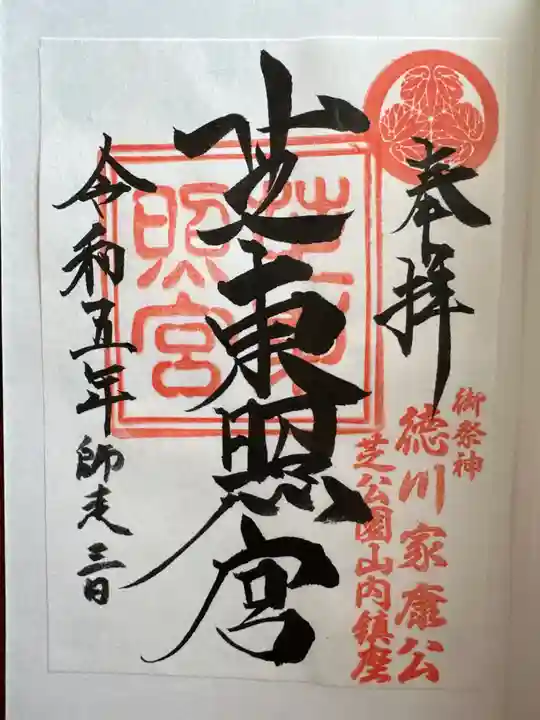 奉拝
御祭神
徳川家康公
芝公園山内鎮座
芝東照宮
芝東照宮
令和五年師走三日